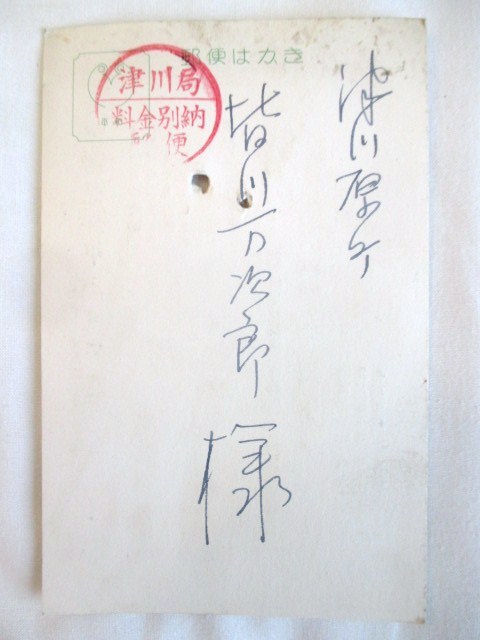 郵便はがき
津川局
料金別納
便
津川原町
皆川万次郎
様